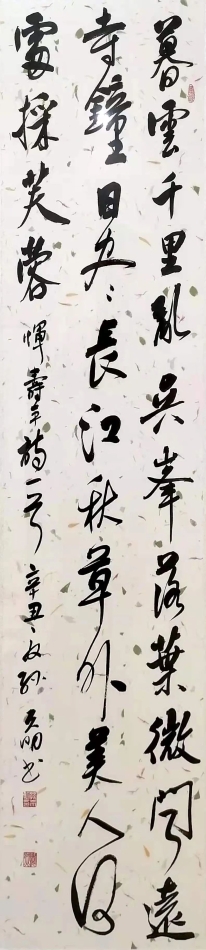 暮雲千里亂吳峯落葉微聞遠
寺鐘目尽長江秋草外美人何
處採芙蓉 惲壽平詩一首 辛丑 書